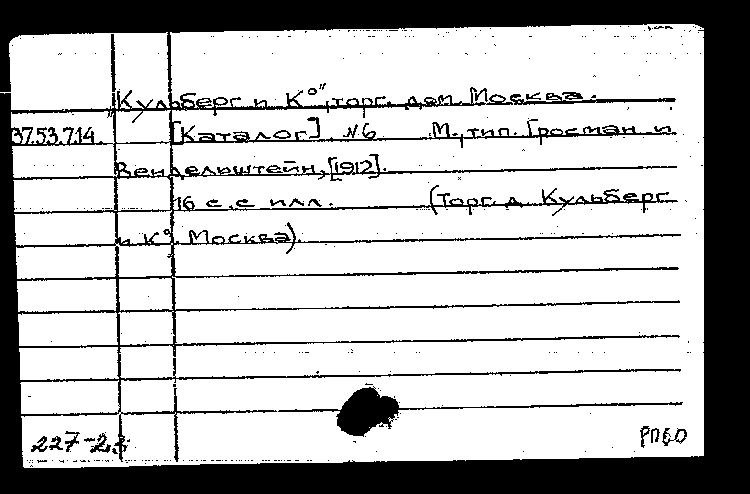 „Кульберг и К°“, торг. дом. Москва.
37.53.7.14. [Каталог] №6 М., тип. Гросман и
Вендельштейн, [1912].
16 с. с илл. (Торг. д. Кульберг
и К°. Москва).
227-2,3
РПБО